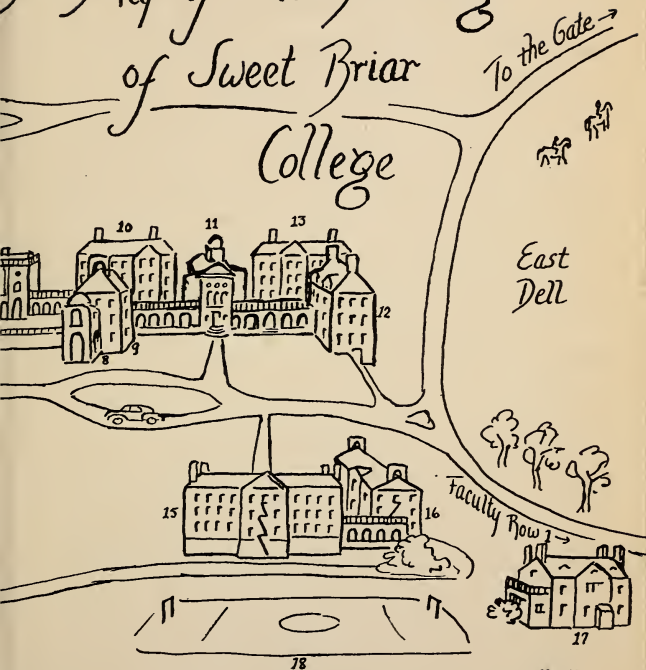 of Sweet Briar
College
To the Gate →
East
Dell
10
11
13
12
8
9
15
16
Faculty Row 1 →
17
18